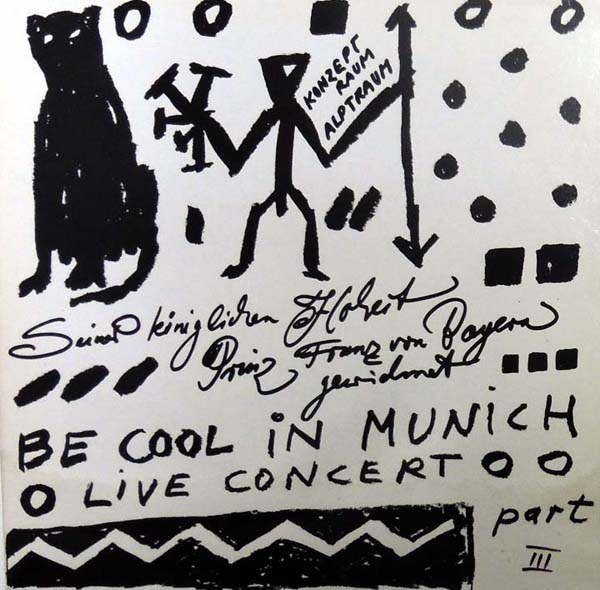 KONZEPT
RAUM
ALPTRAUM
Seiner königlichen Hoheit
Prinz Franz von Bayern
gewidmet
BE COOL iN MUNiCH
LiVE CONCERT
part
III